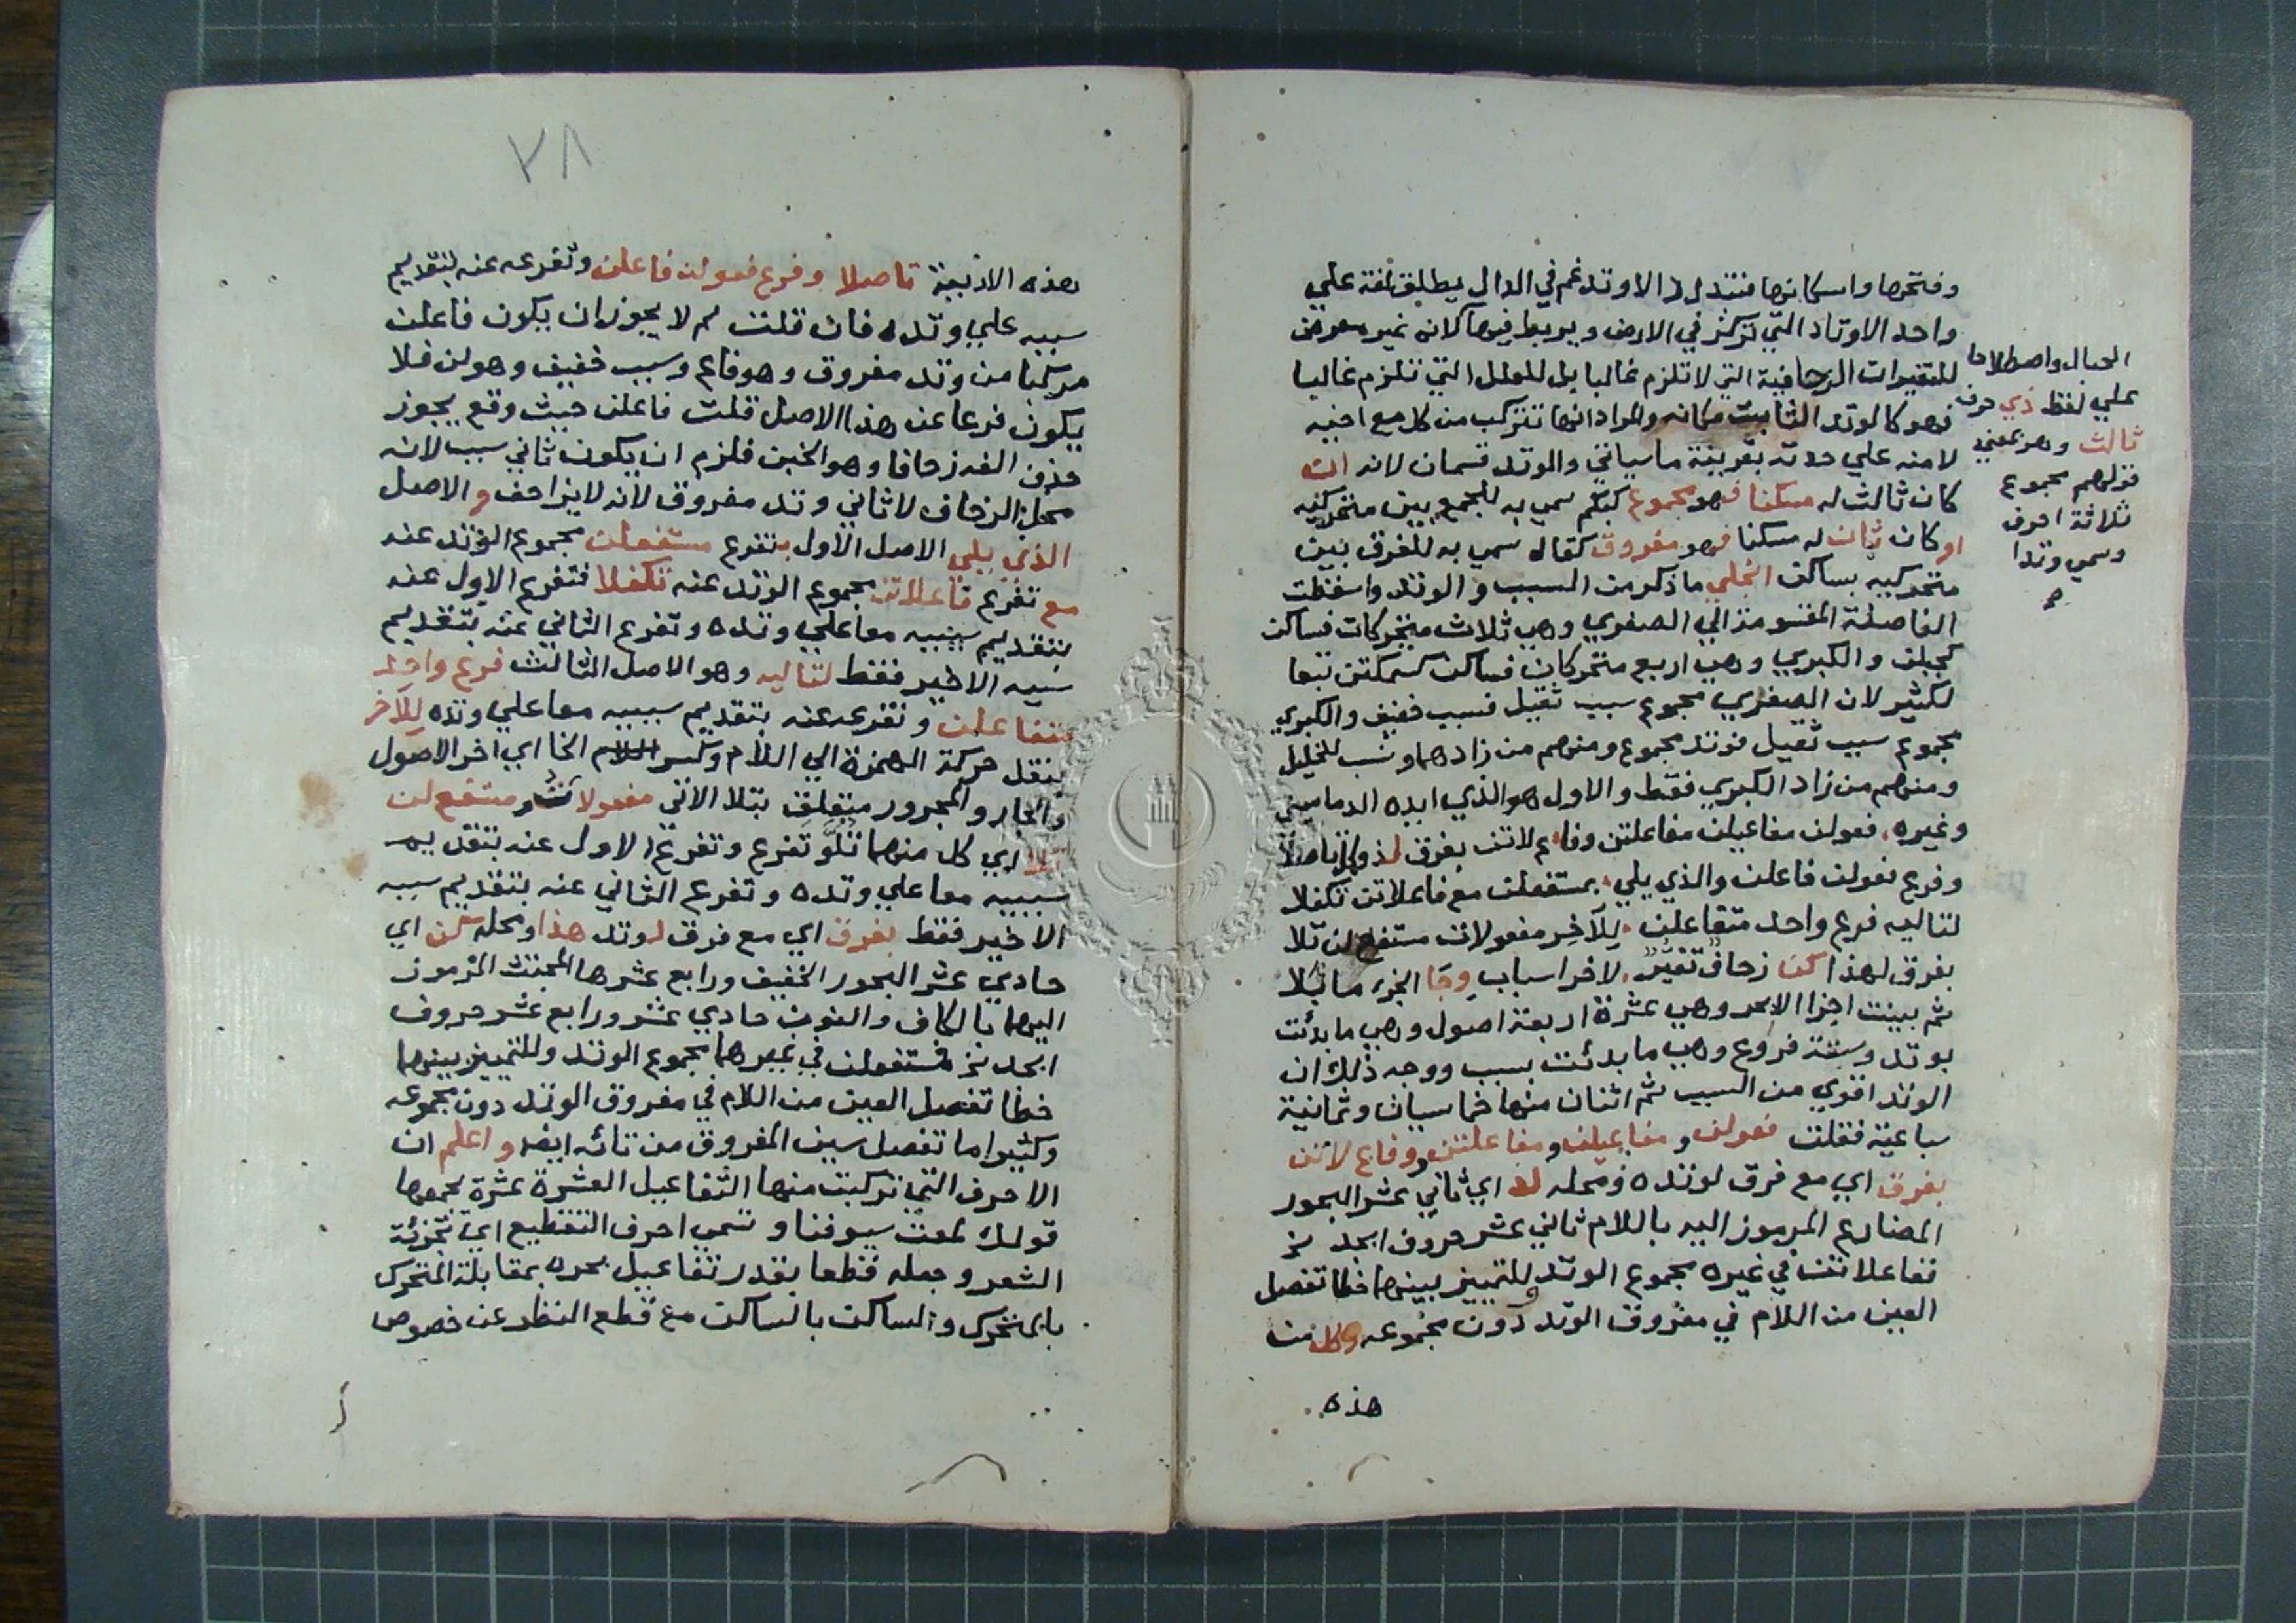 وفتحها واسكانها فتبدل دالا وتدغم في الدال يطلق لغة علي
واحد الاوتاد التي تركز في الارض ويربط فيها كلانه غير معرض
للتغيرات الزحافية التي لا تلزم غالبا بل للعلل التي تلزم غالبا
فهو كالوتد الثابت مكانه والمراد انها تتركب من كل مع اخيه
لا منه علي حدته بقرينة ما سياتي والوتد قسمان لانه ان
كان ثالث له مسكنا فهو مجموع كبكم سمي به للجمع بين متحركيه
او كان ثان له مسكنا فهو مفروق كقاله سمي به للفرق بين
متحركيه بساكن انجلي ما ذكر من السبب والوتد واسقطت
الفاصلة المقسومة الي الصغري وهي ثلاث متحركات فساكن
كجبلن والكبري وهي اربع متحركات فساكن كسمكتن تبعا
لكثير لان الصغري مجموع سبب ثقيل فسبب خفيف والكبري
مجموع سبب ثقيل فوتد مجموع ومنهم من زادهما ونسب للخليل
ومنهم من زاد الكبري فقط والاول هو الذي ايده الدماميني
وغيره فعولن مفاعيلن مفاعلتن وفاع لاتن بفرق لذو تاصلا
وفرع فعولن فاعلن والذي يلي بمستفعلن مع فاعلاتن تكفلا
لتاليه فرع واحد متفاعلن للآخر مفعولات مستفع لن تلا
بفرق لهذا كن زحاف تغير لاخر اسباب وجا الجزء ما تلا
ثم بينت اجزا الابحر وهي عشرة اربعة اصول وهي ما بدئت
بوتد وستة فروع وهي ما بدئت بسبب ووجه ذلك ان
الوتد اقوي من السبب ثم اثنان منها خماسيان وثمانية
سباعية فقلت فعولن ومفاعيلن ومفاعلتن وفاع لاتن
بفرق اي مع فرق لوتده ومحله لذ اي ثاني عشر البحور
المضارع المرموز اليه باللام ثاني عشر حروف ابجد نخ
ففاعلاتن في غيره مجموع الوتد وللتمييز بينهما خطا تفصل
العين من اللام في مفروق الوتد دون مجموعه وكل من
هذه
الحبال واصطلاحا
علي لفظ ذي حرف
ثالث وهو بمعني
قولهم مجموع
ثلاثة احرف
وسمي وتدا
٢٨
هذه الاربعة تاصلا وفرع فعولن فاعلن وتفرعه عنه بتقديم
سببه علي وتده فان قلت لم لا يجوز ان يكون فاعلن
مركبا من وتد مفروق وهو فاع وسبب خفيف وهو لن فلا
يكون فرعا عن هذا الاصل قلت فاعلن حيث وقع يجوز
حذف الفه زحافا وهو الخبن فلزم ان يكون ثاني سبب لانه
محل الزحاف لا ثاني وتد مفروق لانه لا يزاحف والاصل
الذي يلي الاصل الاول بتفرع مستفعلن مجموع الوتد عنه
مع تفرع فاعلاتن مجموع الوتد عنه تكفلا فتفرع الاول عنه
بتقديم سببيه معا علي وتده وتفرع الثاني عنه بتقديم
سببه الاخير فقط لتاليه وهو الاصل الثالث فرع واحد
متفاعلن وتفرعه عنه بتقديم سببيه معا علي وتده للآخر
بنقل حركة الهمزة الي اللام وكسر الخا اي اخر الاصول
والجار والمجرور متعلق بتلا الاتي مفعولات ومستفع لن
تلا اي كل منهما تلو تفرع وتفرع الاول عنه بتقديم
سببيه معا علي وتده وتفرع الثاني عنه بتقديم سببه
الاخير فقط بفرق اي مع فرق لوتد هذا ومحله كن اي
حادي عشر البحور الخفيف ورابع عشرها المجتث المرموز
اليهما بالكاف والنون حادي عشر ورابع عشر حروف
ابجد نخ فمستفعلن في غيرهما مجموع الوتد وللتمييز بينهما
خطا تفصل العين من اللام في مفروق الوتد دون مجموعه
وكثيرا ما تفصل سين المفروق من تائه ايضا واعلم ان
الاحرف التي تركبت منها التفاعيل العشرة عشرة يجمعها
قولك لمعت سيوفنا وتسمى احرف التقطيع اي تجزئة
الشعر وجعله قطعا بقدر تفاعيل بحره بمقابلة المتحرك
بالمتحرك والساكن بالساكن مع قطع النظر عن خصوص